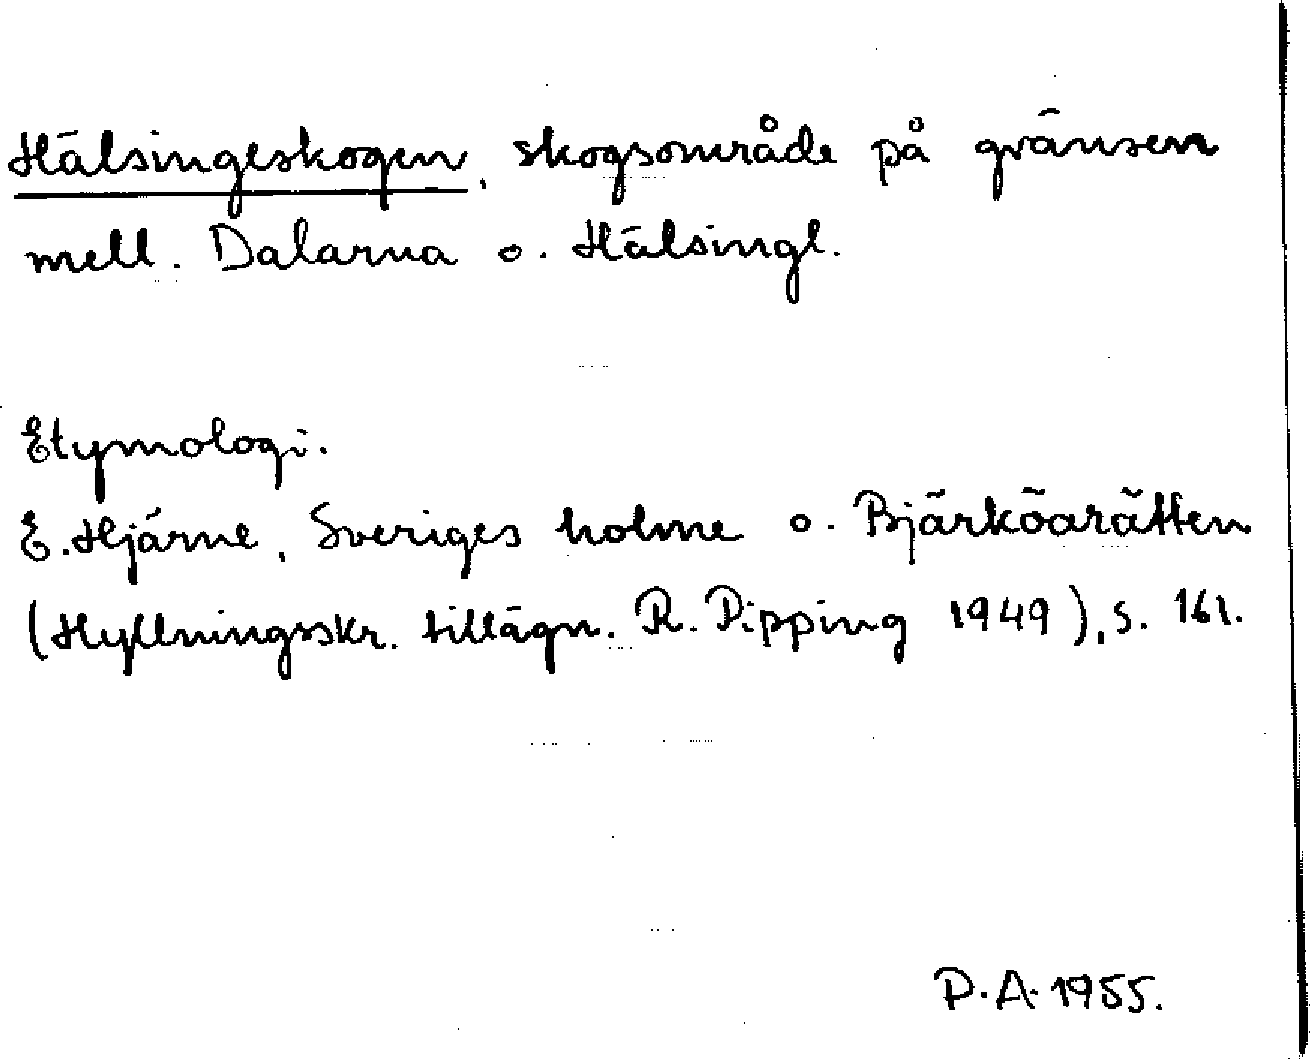 Hälsingeskogen, skogsområde på gränsen
mell. Dalarna o. Hälsingl.
Etymologi.
E. Hjärne, Sveriges holme o. Bjärköarätten
(Hyllningsskr. tillägn. R. Pipping 1949), s. 161.
P.A. 1955.